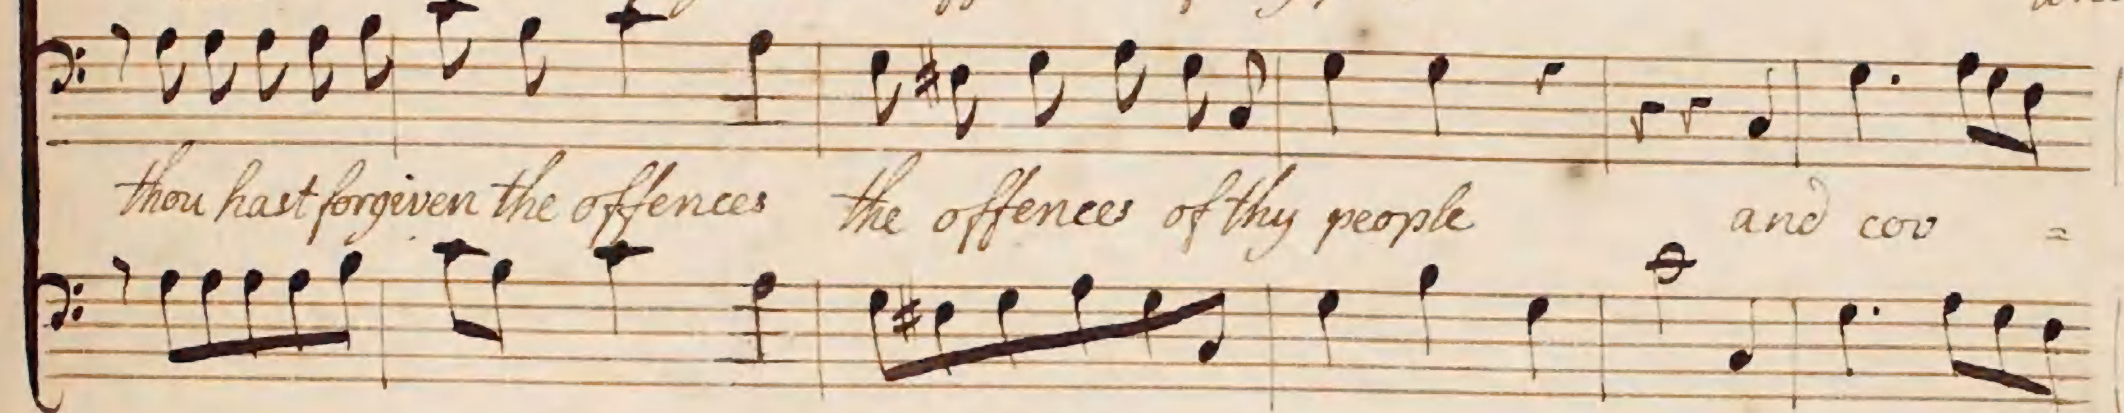 thou hast forgiven the offences the offences of thy people and cov =